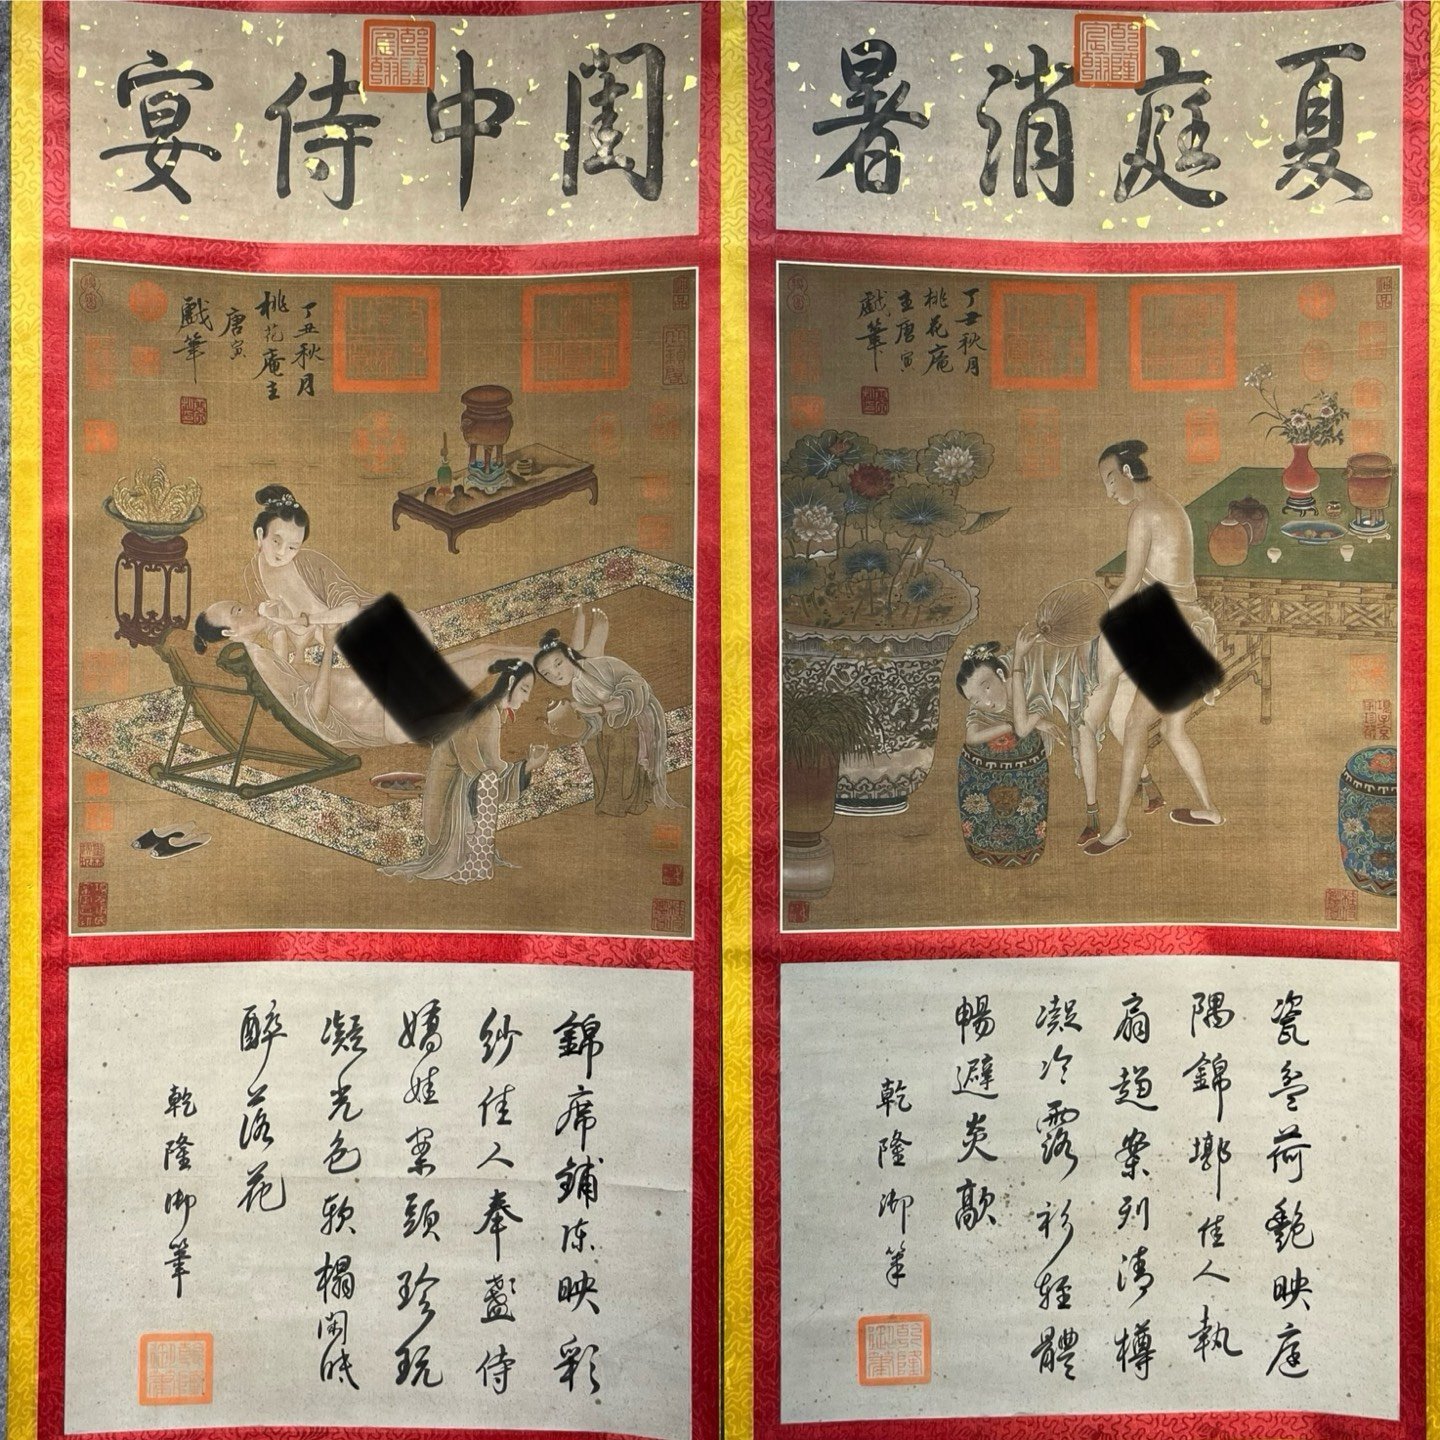 閨中侍宴
乾隆宸翰
丁丑秋月
桃花庵主
唐寅
戲筆
錦席鋪陳映彩
紗佳人奉盞侍
嬌娃案頭珍玩
凝光色軟榻閑眠
醉落花
乾隆御筆
乾隆御筆
夏庭消暑
乾隆宸翰
丁丑秋月
桃花庵
主唐寅
戲筆
瓷盆荷艷映庭
隅錦墩佳人執
扇趨案列清樽
凝冷露衫輕體
暢避炎歊
乾隆御筆
乾隆御筆